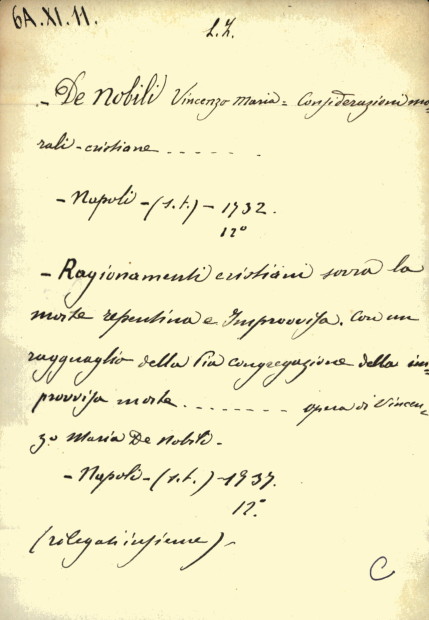 6A.XI.11.
L.Z.
- De Nobili Vincenzo Maria = Considerazioni mo-
rali-cristiane - - - - - -
- Napoli - (s.t.) - 1732.
12º
- Ragionamenti cristiani sovra la
morte repentina e Improvvisa. Con un
ragguaglio della Pia congregazione della im-
provvisa morte - - - - - - - opera di Vincen-
zo Maria De Nobili -
- Napoli - (s.t.) - 1937.
12º.
(rilegati insieme) -
C